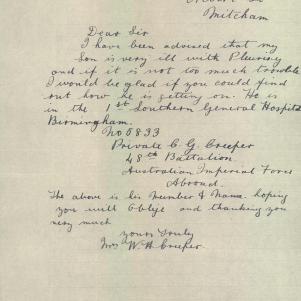 Mitcham
Dear Sir
I have been advised that my
Son is very ill with Pleurisy
and if it is not too much trouble
I would be glad if you could find
out how he is getting on. He is
in the 1st Southern General Hospital
Birmingham.
No 5833
Private C. G. Creeper
48th Battalion
Australian Imperial Force
Abroad.
The above is his Number & Name. hoping
you will Oblige and thanking you
very much
Yours Truly
Mrs W H Creeper.